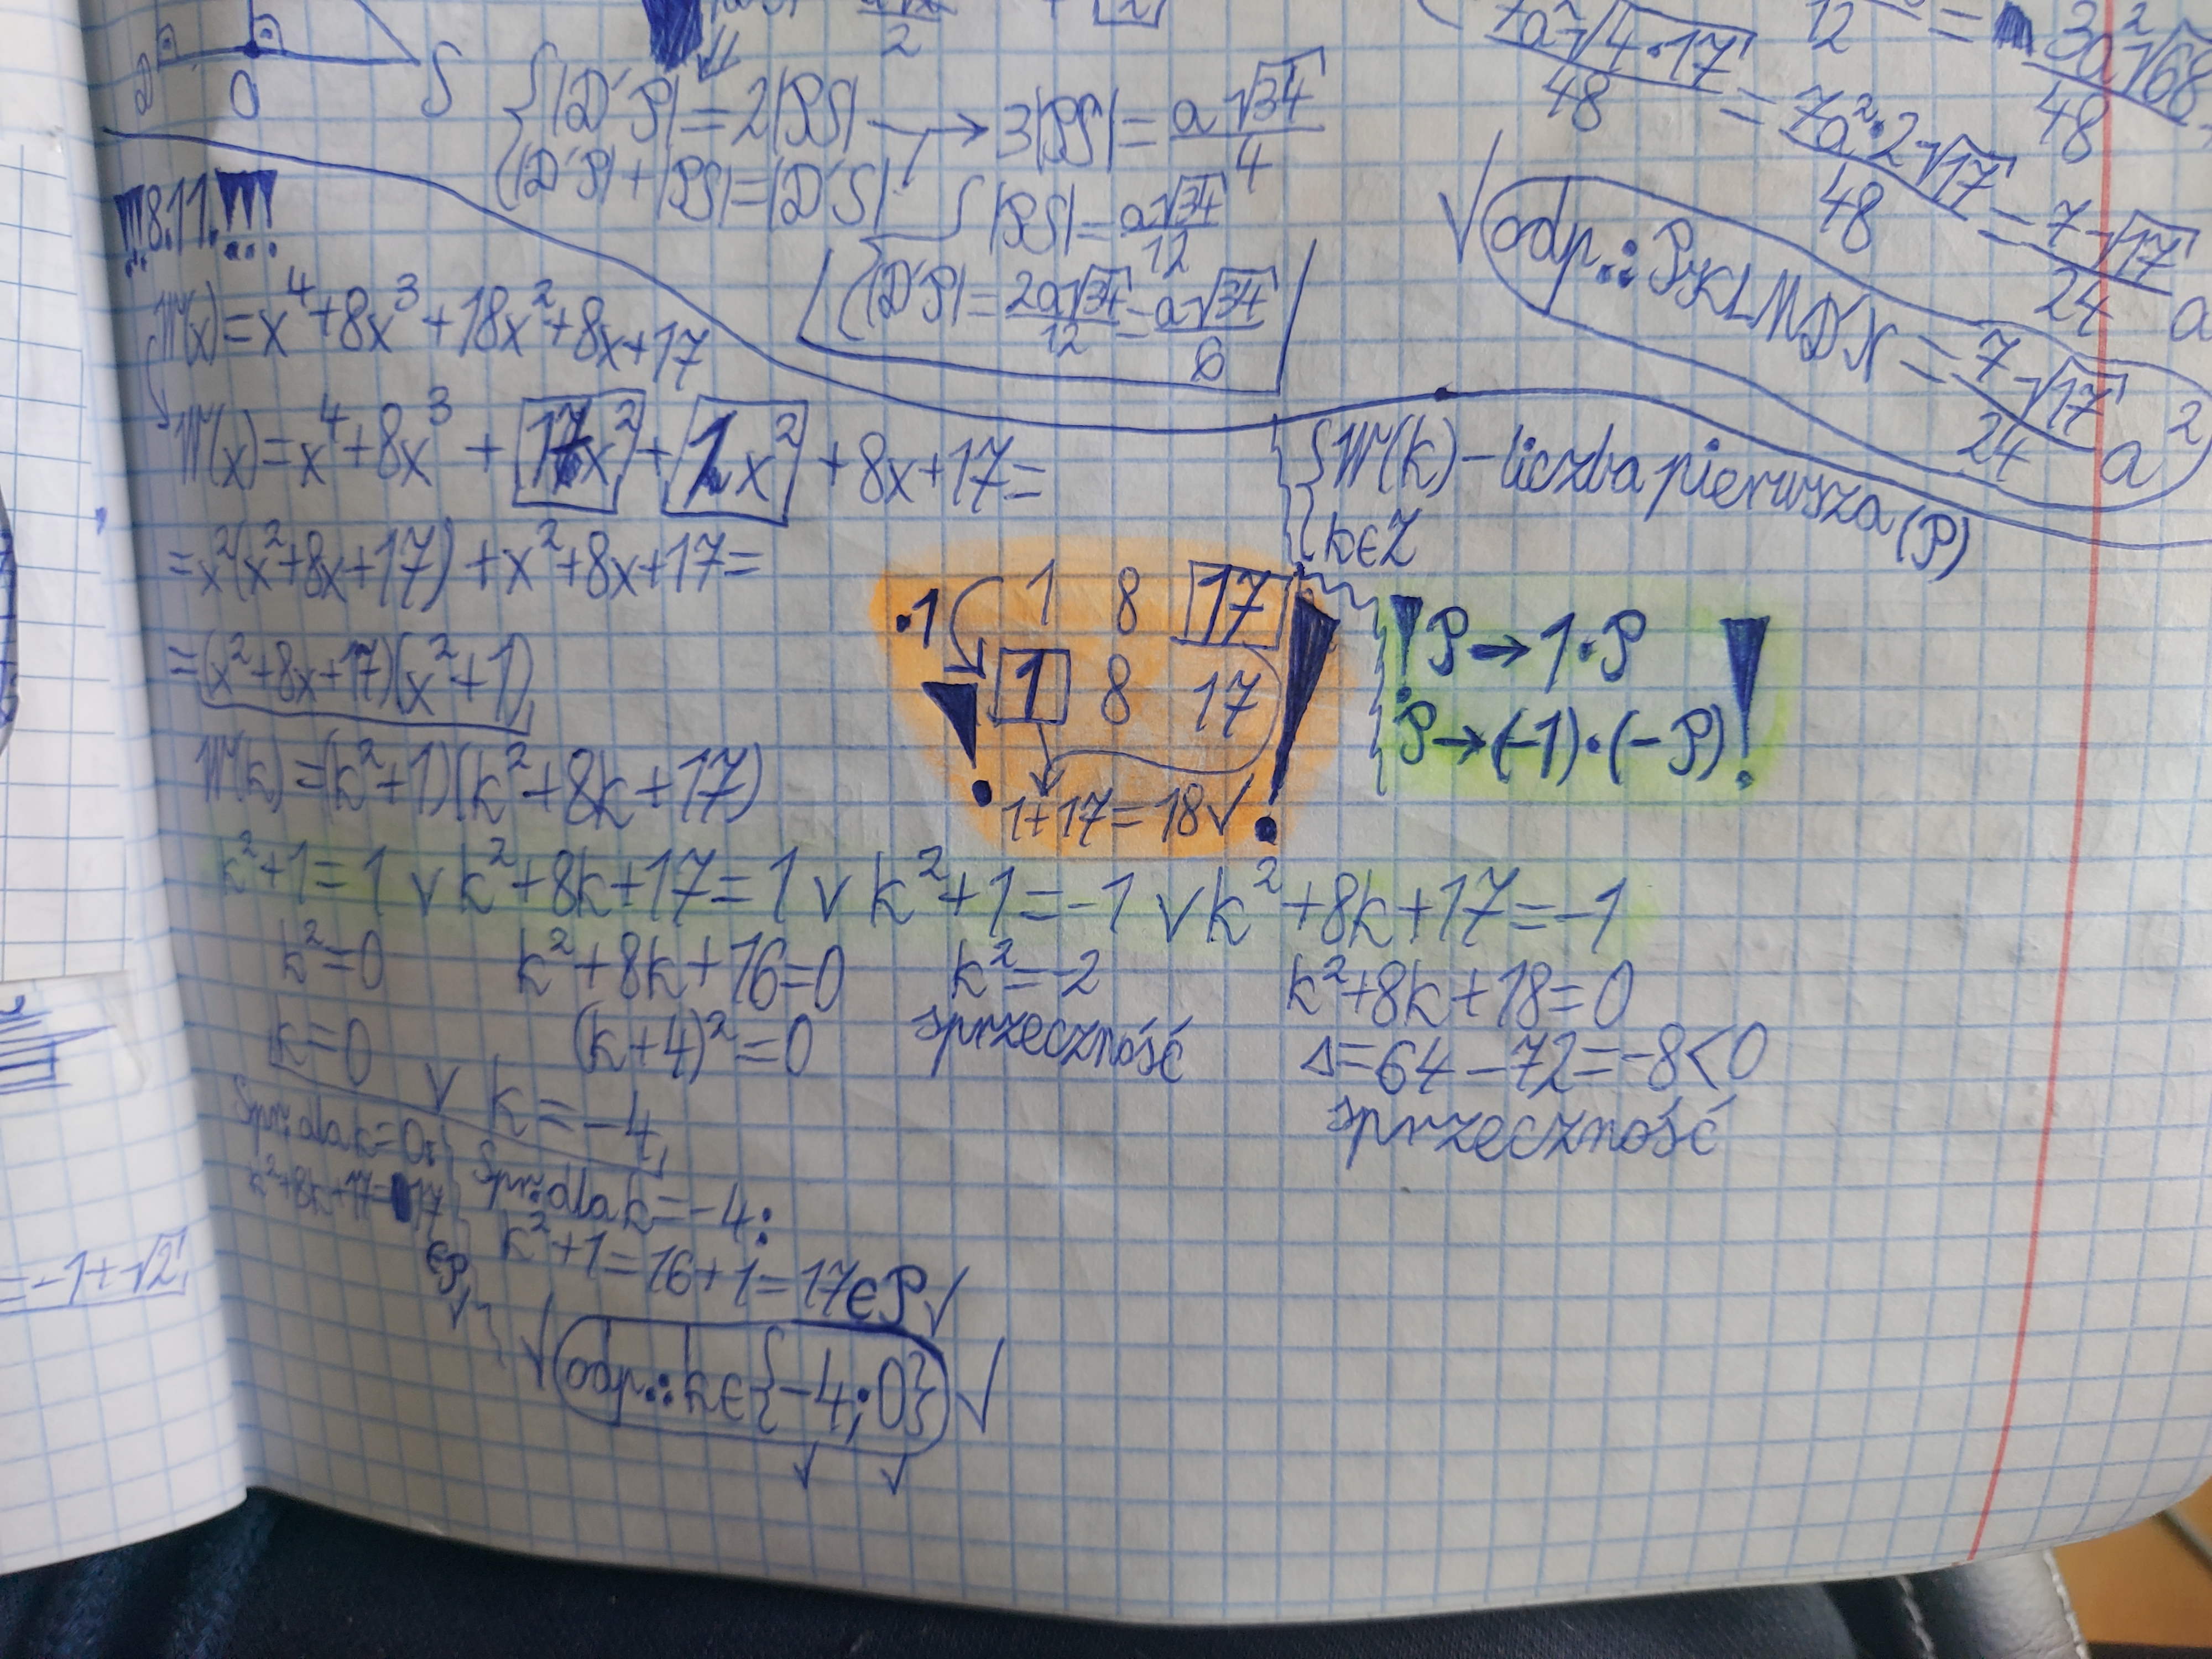 2
D O S
{|D'P| = 2|PS| → 3|PS| = a√34/4
{|D'P| + |PS| = |D'S|
{|PS| = a√34/12
{|D'P| = 2a√34/12 = a√34/6
7a²√4·17/48 = 7a²·2√17/48 = 7√17/24 a
12 = 3a²√68/48
√ odp.: PKLMD'N = 7√17/24 a²
!!!8.11.!!!
W(x) = x⁴+8x³+18x²+8x+17
W(x) = x⁴+8x³ + 17x² + 1x² + 8x+17=
= x²(x²+8x+17) + x²+8x+17=
= (x²+8x+17)(x²+1)
W(k) = (k²+1)(k²+8k+17)
{W(k) – liczba pierwsza (P)
{k∈Z
·1 1 8 17
! 1 8 17 !
1+17=18√
! P → 1·P !
P → (-1)·(-P)
k²+1=1 ∨ k²+8k+17=1 ∨ k²+1=-1 ∨ k²+8k+17=-1
k²=0 k²+8k+16=0 k²=-2 k²+8k+18=0
k=0 (k+4)²=0 sprzeczność Δ=64-72=-8<0
∨ k=-4 sprzeczność
Spr: dla k=0:
k²+8k+17=17
∈P √
Spr: dla k=-4:
k²+1=16+1=17∈P√
√ odp.: k∈{-4;0} √
√ √
=-1+√2